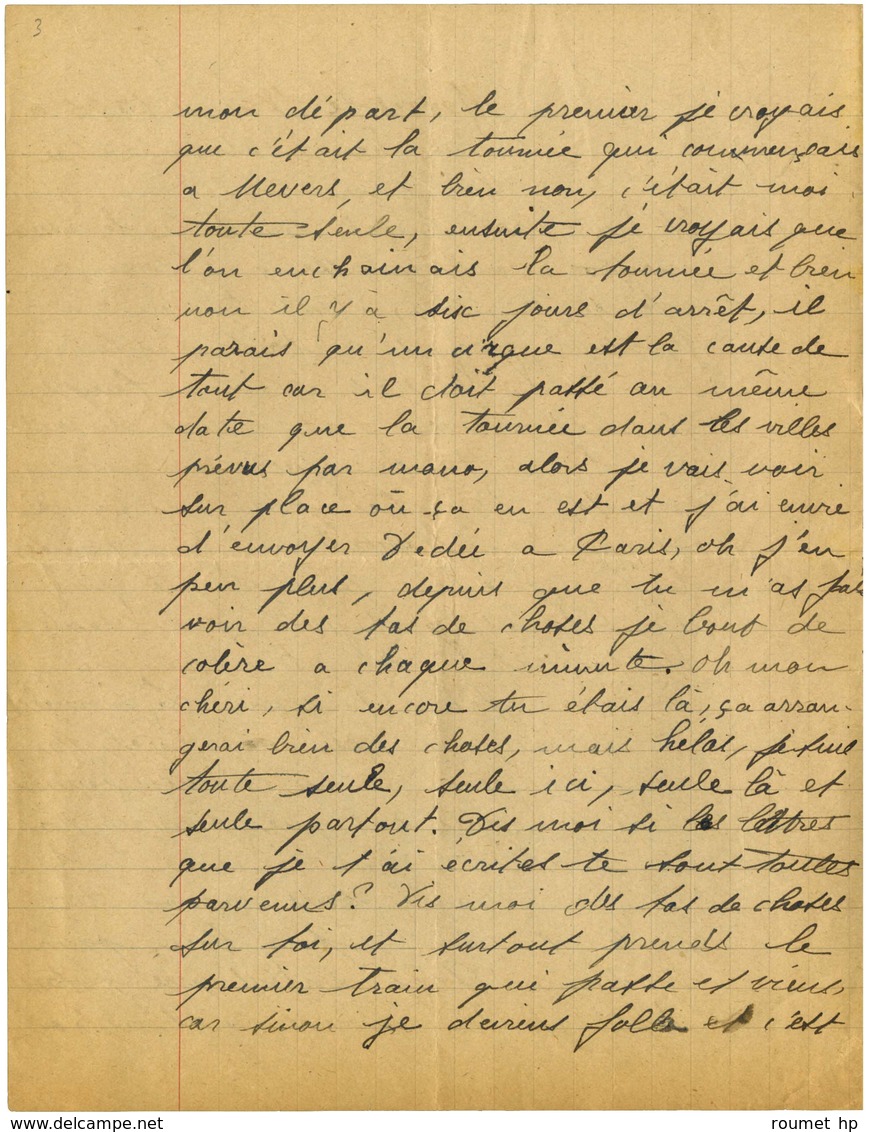 3
mon départ, le premier je croyais
que c'était la tournée qui commençais
a Nevers, et bien non, c'était moi
toute seule, ensuite je croyais que
l'on enchainais la tournée et bien
non il y à six jours d'arrêt, il
parais qu'un cirque est la cause de
tout car il doit passé au même
date que la tournée dans les villes
prévus par mano, alors je vais voir
sur place où ça en est et j'ai envie
d'envoyer Dedée a Paris, oh j'en
peu plus, depuis que tu m'as fais
voir des tas de choses je bout de
colère a chaque minute. Oh mon
chéri, si encore tu étais là, ça arran-
gerai bien des choses, mais hélas, je suie
toute seule, seule ici, seule là et
seule partout. Dis moi si les lettres
que je t'ai écrites te sont toutes
parvenus? Dis moi des tas de choses
sur toi, et surtout prends le
premier train qui passe et viens,
car sinon je deviens folle et c'est
roumet hp